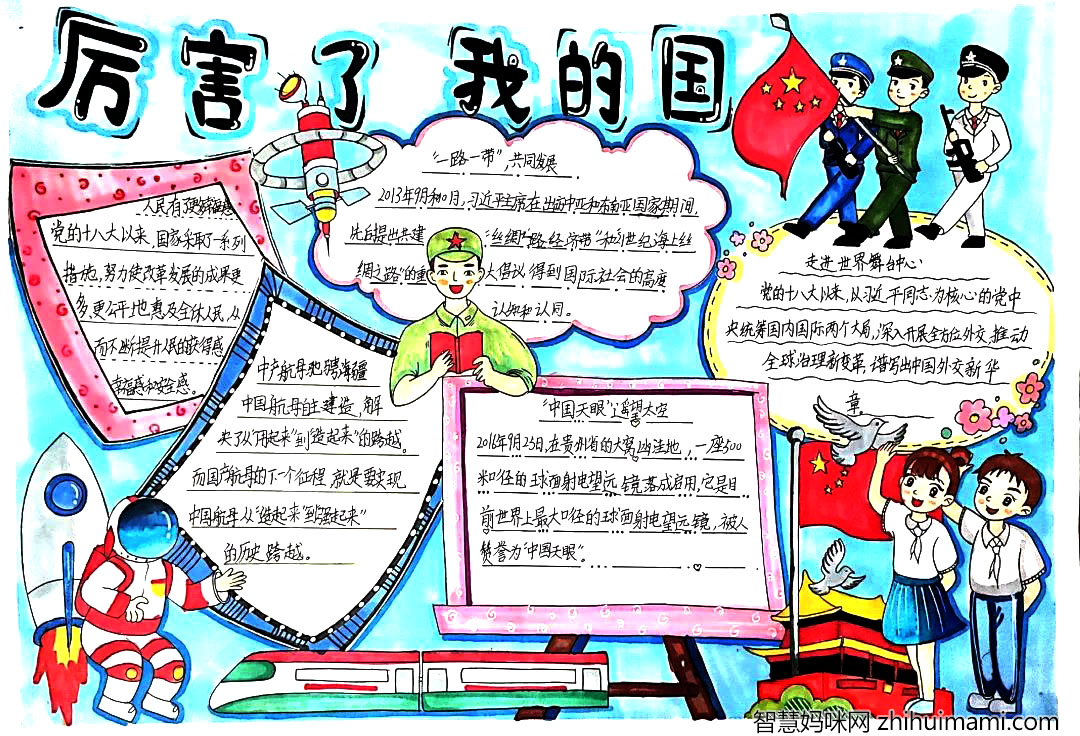 厉害了 我的国
人民有了更多幸福感
党的十八大以来，国家采取了一系列
措施，努力使改革发展的成果更
多更公平地惠及全体人民，从
而不断提升人民的获得感
幸福感和安全感。
"一路一带"，共同发展
2013年9月和10月，习近平主席在出访中亚和东南亚国家期间，
先后提出共建"丝绸之路经济带"和"21世纪海上丝
绸之路"的重大倡议得到国际社会的高度
认知和认同。
走进世界舞台中心
党的十八大以来，以习近平同志为核心的党中
央统筹国内国际两个大局，深入开展全方位外交，推动
全球治理新变革，谱写出中国外交新华
章
中产航母驰骋海疆
中国航母自主建造，解
决了从"用起来"到"造起来"的跨越。
而国产航母的下一个征程，就是要实现
中国航母从"造起来"到"强起来"
的历史跨越。
"中国天眼"遥望太空
2016年9月25日，在贵州省的大窝凼洼地，一座500
米口径的球面射电望远镜落成启用，它是目
前世界上最大口径的球面射电望远镜，被人
赞誉为"中国天眼"。
智慧妈咪网 zhihuimami.com